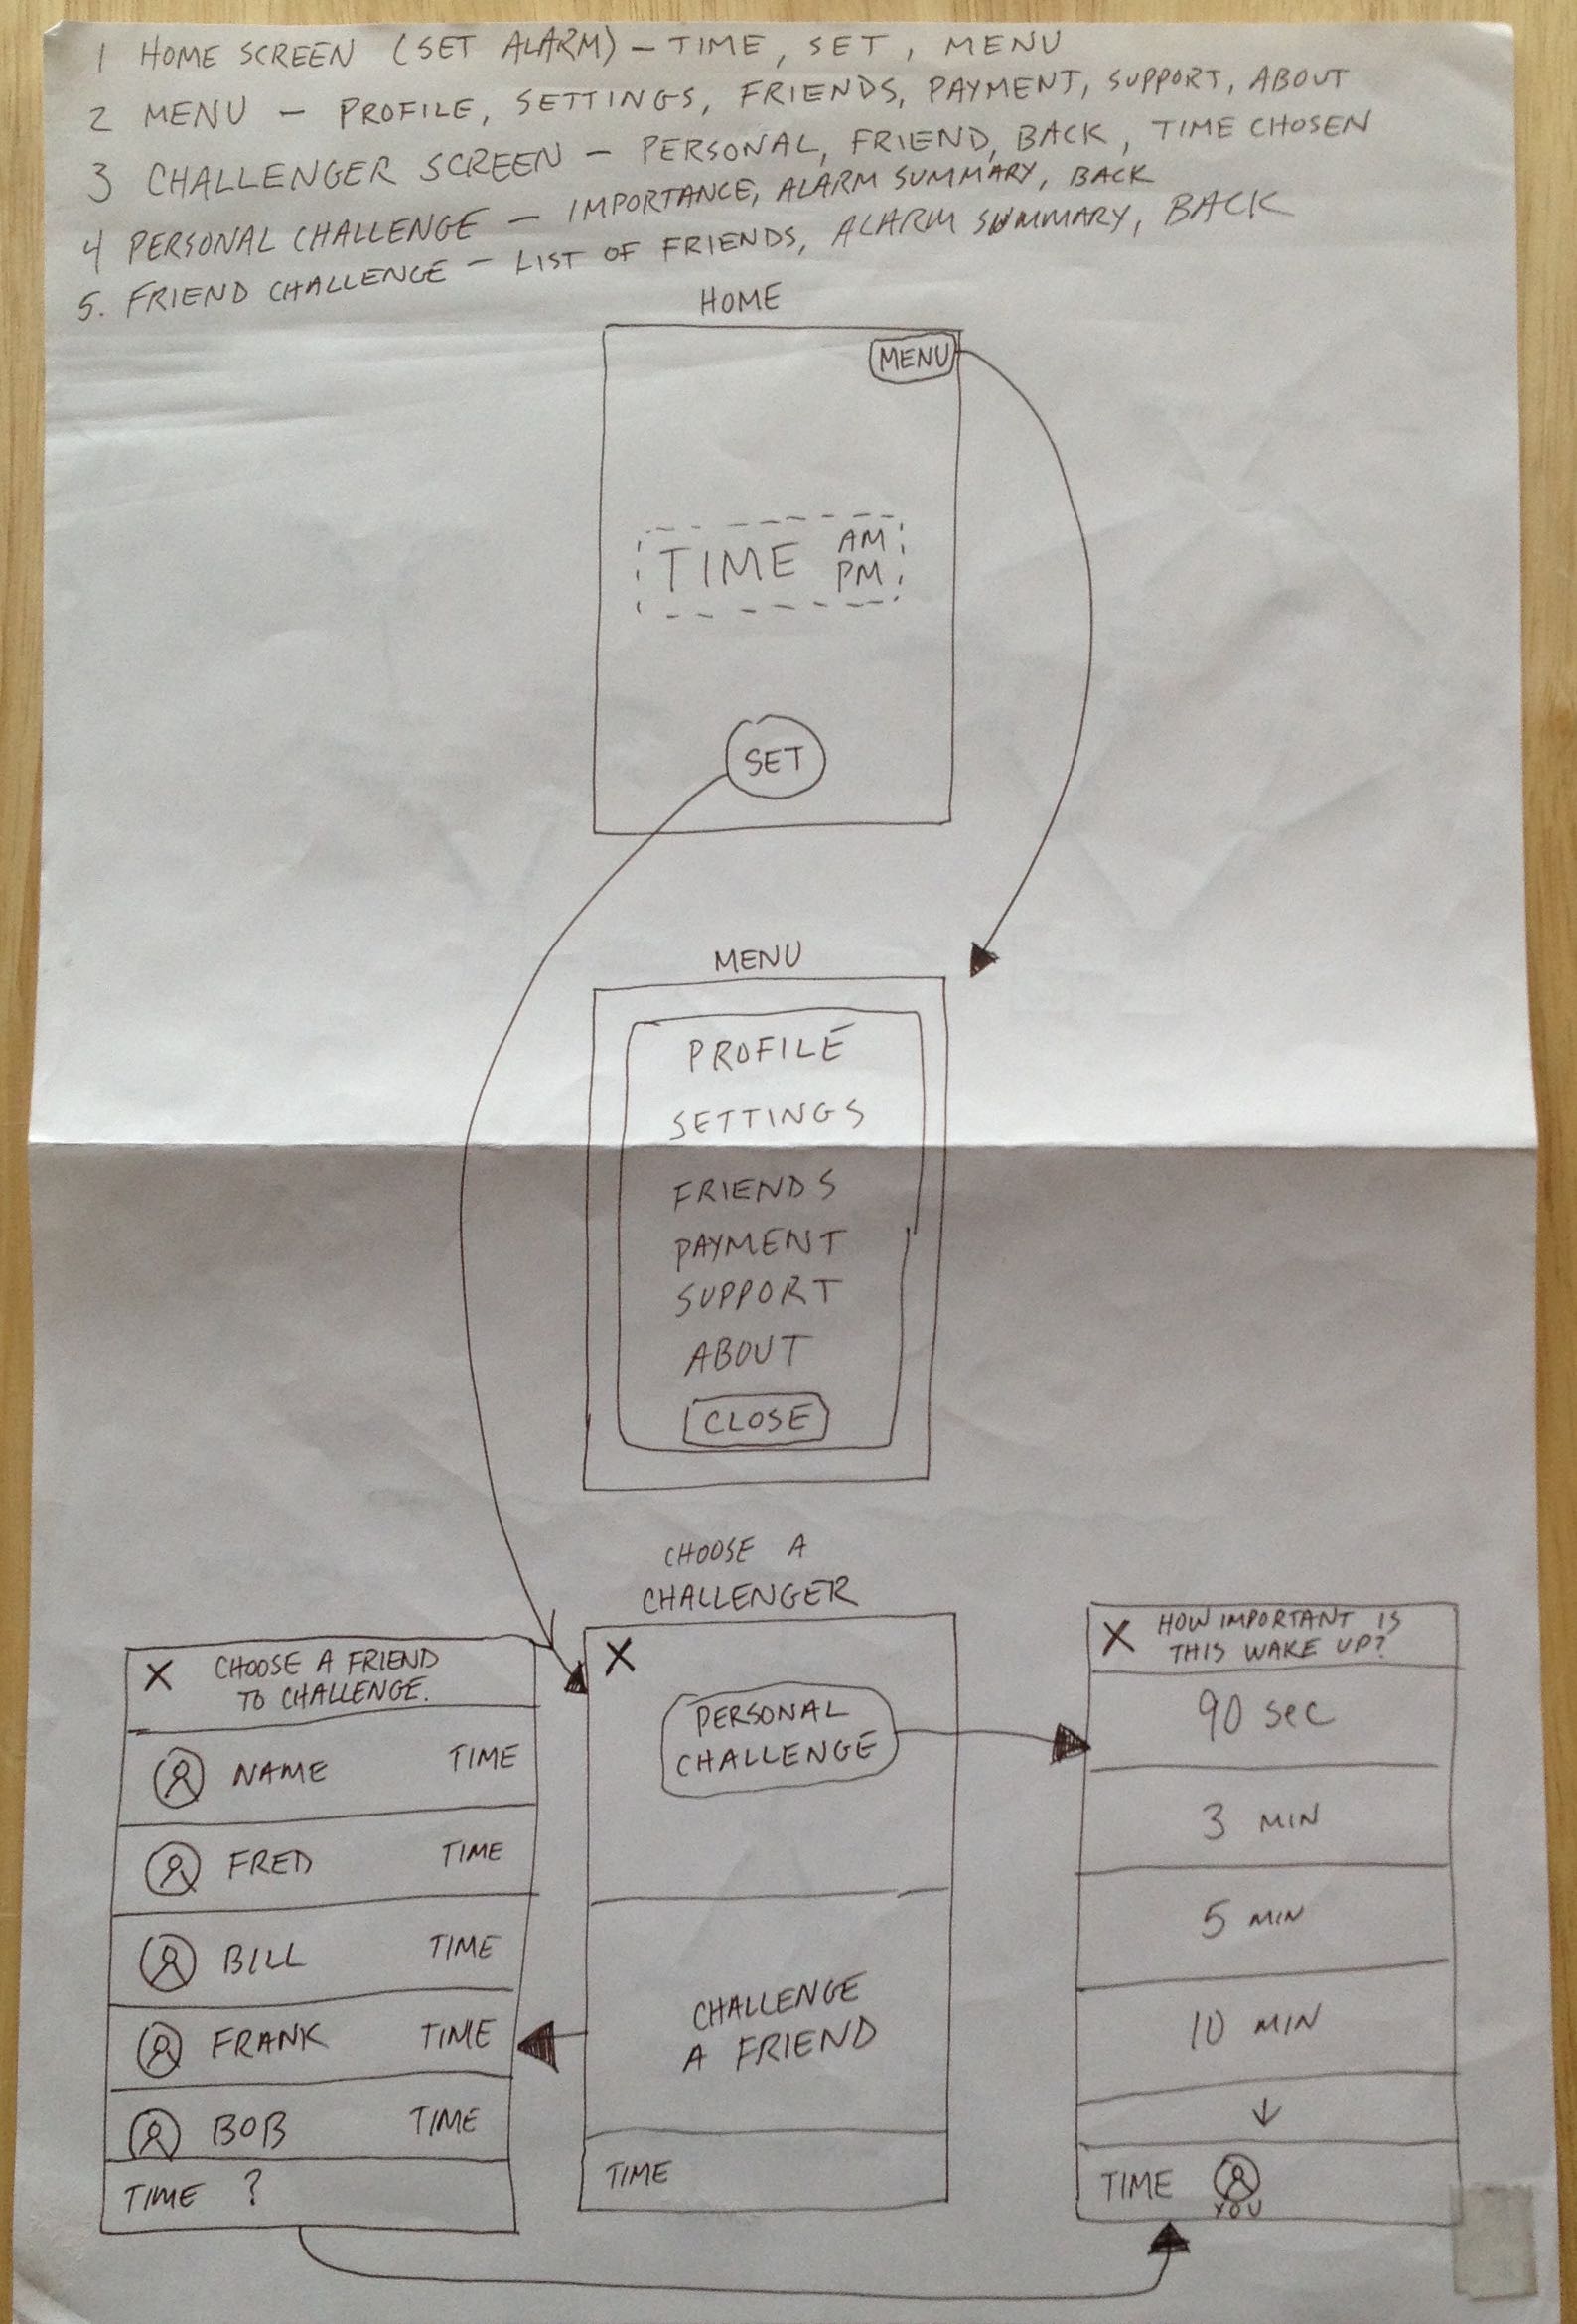 1 HOME SCREEN (SET ALARM) – TIME, SET, MENU
2 MENU – PROFILE, SETTINGS, FRIENDS, PAYMENT, SUPPORT, ABOUT
3 CHALLENGER SCREEN – PERSONAL, FRIEND, BACK, TIME CHOSEN
4 PERSONAL CHALLENGE – IMPORTANCE, ALARM SUMMARY, BACK
5. FRIEND CHALLENGE – LIST OF FRIENDS, ALARM SUMMARY, BACK
HOME
MENU
TIME AM
PM
SET
MENU
PROFILE
SETTINGS
FRIENDS
PAYMENT
SUPPORT
ABOUT
CLOSE
CHOOSE A
CHALLENGER
X CHOOSE A FRIEND
TO CHALLENGE.
NAME TIME
FRED TIME
BILL TIME
FRANK TIME
BOB TIME
TIME ?
X
PERSONAL
CHALLENGE
CHALLENGE
A FRIEND
TIME
X HOW IMPORTANT IS
THIS WAKE UP?
90 sec
3 MIN
5 MIN
10 MIN
TIME
YOU